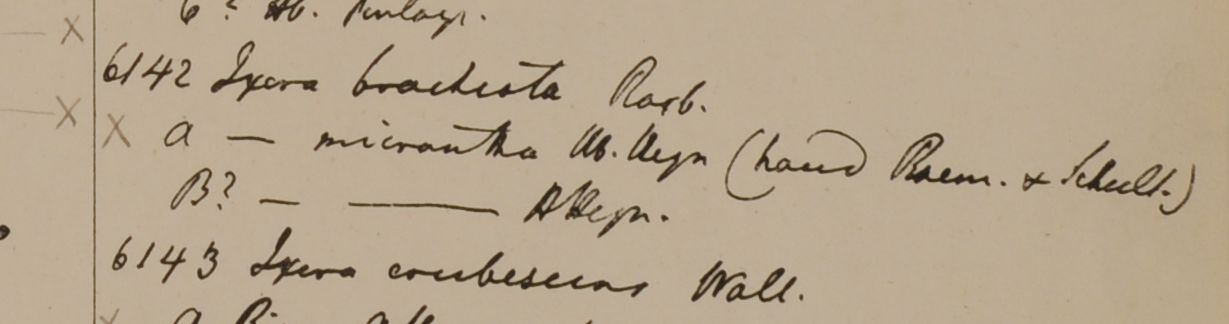 6? Hb. Finlays.
6142 Ixora brachiata Roxb.
a — micrantha Hb. Heyn (haud Roem. & Schult.)
B? — —— H Heyn.
6143 Ixora erubescens Wall.